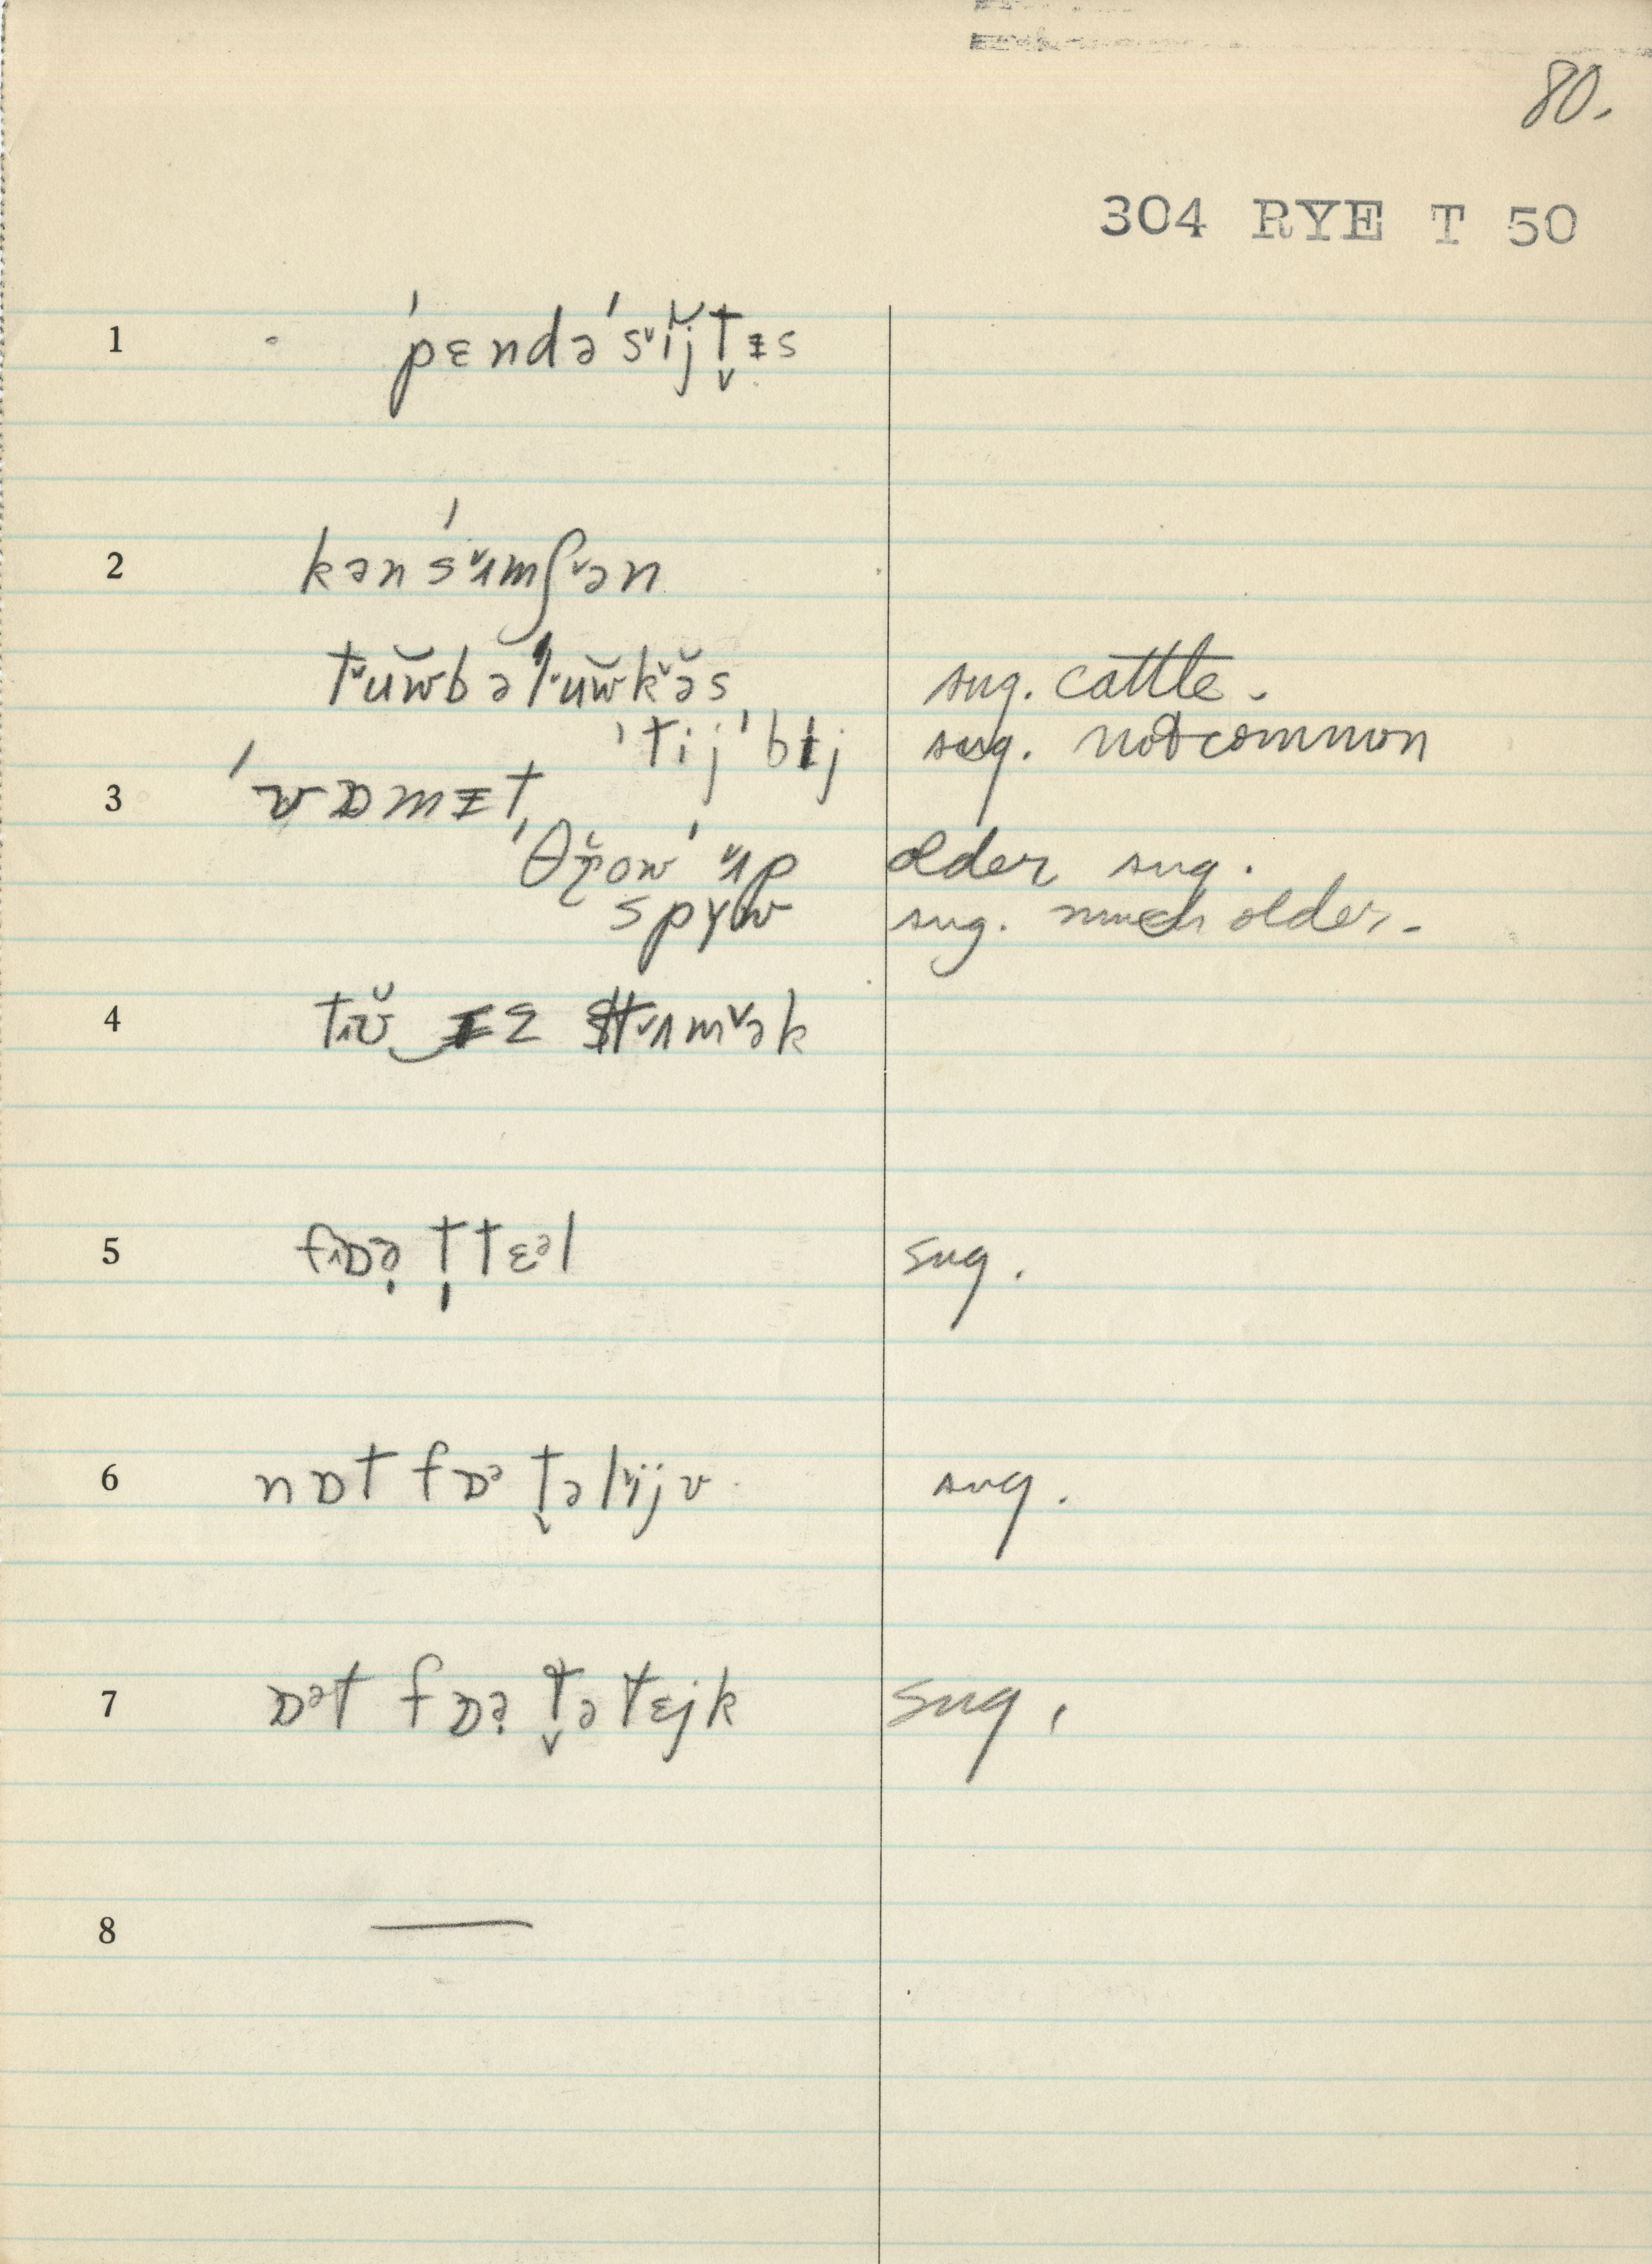 80.
304 RYE T 50
1 ˈpɛndəˈsˇĭjṱɪs
2 kənˈsˇʌmʃˇən
tˇŭw̆bəˈlˇŭw̆kˇə̆s sug. cattle.
ˈtijˈbɪj sug. not common
3 ˈvɒmɪt
ˈθr̥̆owˈˇʌp older sug.
spyw sug. much older.
4 tʌv̆ ɪz stˇʌmˇək
5 fʌɒə̣ ṭ tɛᵊl sug.
6 nɒt fɒᵊ t̬əlˇïjv sug.
7 ɒᵊt fɒə̣ t̬ə tɛjk sug.
8 —